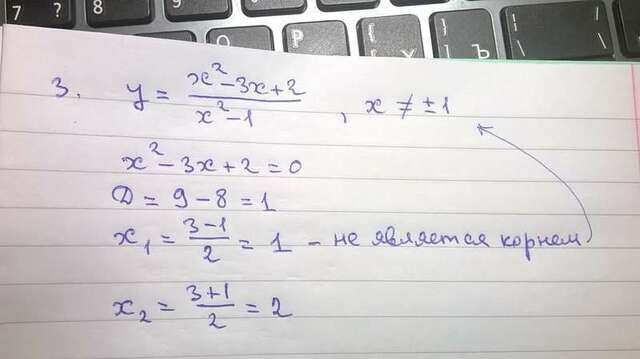 7 ? 8 9
Ъ \
3. y = (x² - 3x + 2)/(x² - 1) , x ≠ ±1
x² - 3x + 2 = 0
D = 9 - 8 = 1
x₁ = (3-1)/2 = 1 - не является корнем
x₂ = (3+1)/2 = 2